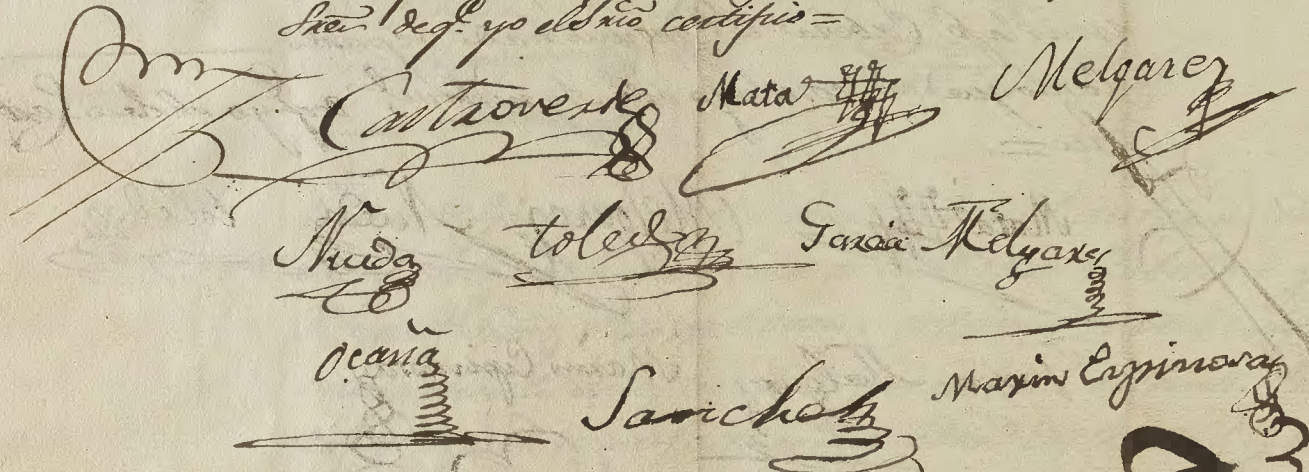 Sres. de q.e yo el Srio certifico=
Castroverde Mata Melgarez
Nuido toledo Garcia Melgarez
ocaña Sanchez Marin Espinosa